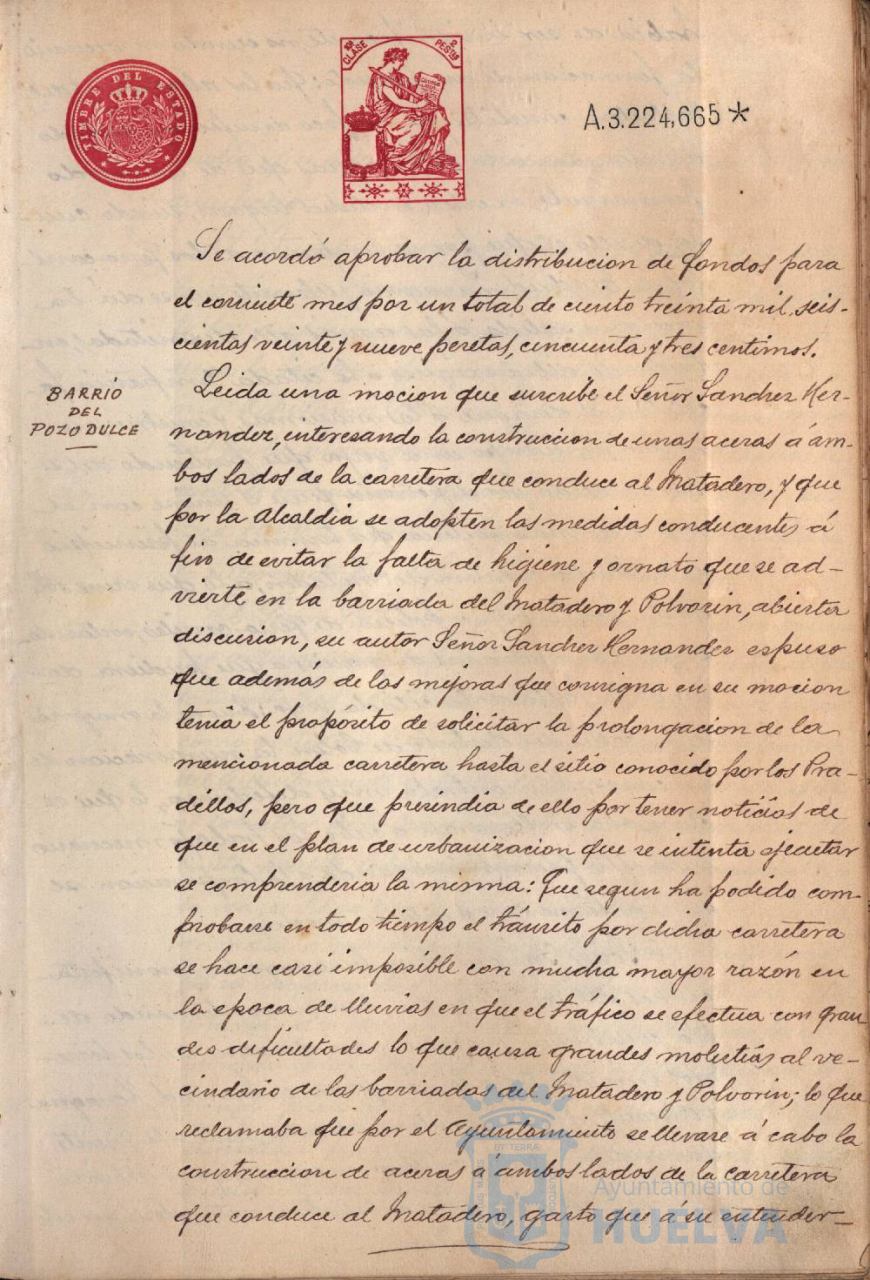 TIMBRE DEL ESTADO
XIª CLASE 2 PESTAS
A.3.224,665*
Se acordó aprobar la distribucion de fondos para
el corriente mes por un total de ciento treinta mil, seis-
cientas veinte y nueve pesetas, cincuenta y tres centimos.
BARRIO
DEL
POZO DULCE
Leida una mocion que suscribe el Señor Sanchez Her-
nandez, interesando la construccion de unas aceras á am-
bos lados de la carretera que conduce al Matadero, y que
por la Alcaldia se adopten las medidas conducentes á
fin de evitar la falta de higiene y ornato que se ad-
vierte en la barriada del Matadero y Polvorin, abierta
discusion, su autor Señor Sanchez Hernandez espuso
que además de las mejoras que consigna en su mocion
tenia el propósito de solicitar la prolongacion de la
mencionada carretera hasta el sitio conocido por los Pra-
dillos, pero que presindia de ello por tener noticias de
que en el plan de urbanizacion que se intenta ejecutar
se comprenderia la misma: Que segun ha podido com-
probarse en todo tiempo el tránsito por dicha carretera
se hace casi imposible con mucha mayor razón en
la epoca de lluvias en que el tráfico se efectua con gran
des dificultades lo que causa grandes molestias al ve-
cindario de las barriadas del Matadero y Polvorin; lo que
reclamaba que por el Ayuntamiento se llevase á cabo la
construccion de aceras á ambos lados de la carretera
que conduce al Matadero, gasto que á su entender-
Ayuntamiento de
HUELVA